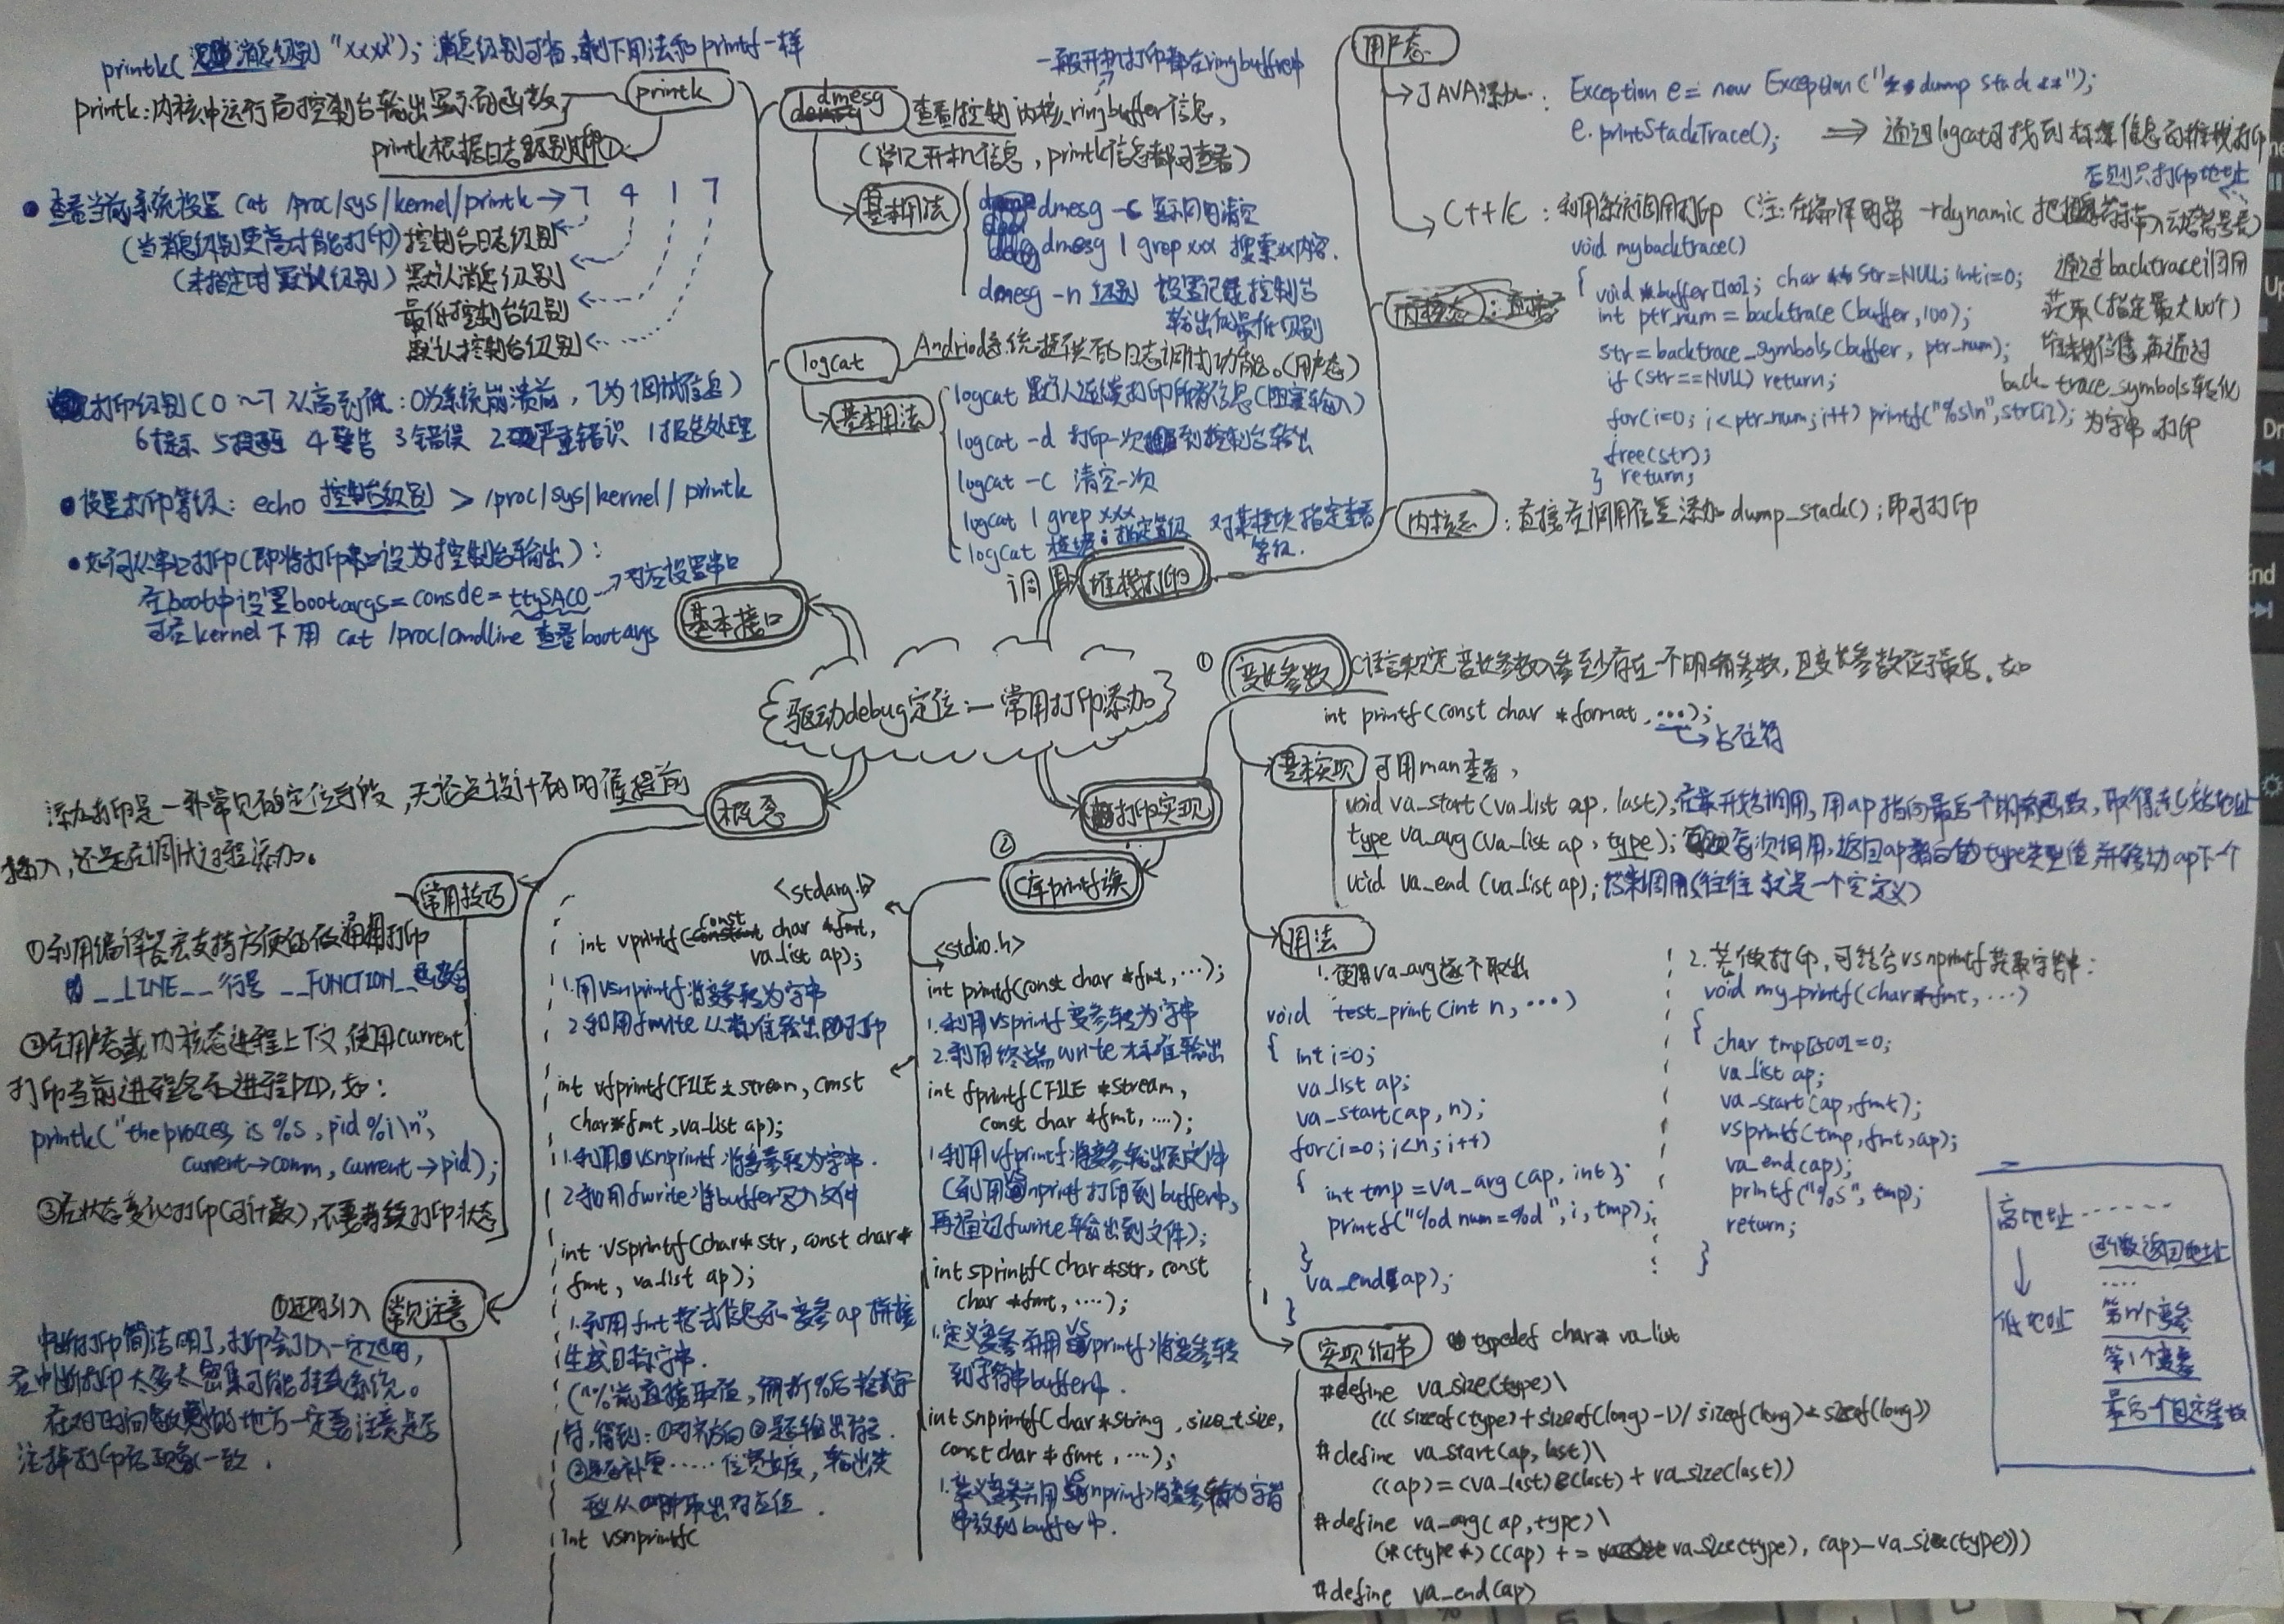 printk( 消息级别 "xxxx"); 消息级别可省,剩下用法和printf一样
printk
printk:内核中运行向控制台输出显示的函数
printk根据日志级别打印①
● 查看当前系统设置 cat /proc/sys/kernel/printk → 7 4 1 7
(当消息级别更高才能打印) 控制台日志级别
(未指定时默认级别) 默认消息级别
最低控制台级别
默认控制台级别
打印级别(0~7 从高到低:0为系统崩溃前,7为调试信息)
6提示 5提醒 4警告 3错误 2严重错误 1报告处理
● 设置打印等级: echo 控制台级别 > /proc/sys/kernel/printk
● 如何从串口打印(即将打印串口设为控制台输出):
在boot中设置bootargs=console=ttySAC0 → 对应设置串口
可在kernel下用 cat /proc/cmdline 查看bootargs
基本接口
一般开机打印都在ringbuffre中
dmesg
查看/控制内核ringbuffer信息,
(常见开机信息,printk信息都可查看)
基本用法
dmesg -c 显示同时清空
dmesg | grep xxx 搜索xx内容.
dmesg -n 级别 设置记录控制台
输出低最低级别
logcat
Andriod系统提供的日志调试功能。(用户态)
基本用法
logcat 默认连续打印所有信息(阻塞输入)
logcat -d 打印一次到控制台输出
logcat -c 清空一次
logcat | grep xxx
logcat 模块:指定等级 对某模块指定查看
等级.
调用
堆栈打印
用户态
→ JAVA添加: Exception e = new Exception ("**dump stack**");
e.printStackTrace(); ⇒ 通过logcat可找到标准信息的堆栈打印
否则只打印地址
→ C++/C : 利用系统调用打印 (注:在编译时需 -rdynamic 把符号带入动态符号表)
void mybacktrace()
{ void *buffer[100]; char **str=NULL; int i=0;
int ptr_num = backtrace (buffer, 100);
str=backtrace_symbols(buffer, ptr_num);
if (str==NULL) return;
for(i=0; i<ptr_num; i++) printf("%s\n", str[i]);
free(str);
} return;
通过backtrace调用
获取(指定最大100个)
堆栈信息,再通过
back_trace_symbols转化
为字串 打印
内核态 : 直接在调用位置添加 dump_stack(); 即可打印
驱动debug定位:一 常用打印添加
概念
添加打印是一种常见的定位手段,无论是设计的时候提前
插入,还是在调试过程添加。
常用技巧
①利用编译器宏支持方便的做通用打印
如 __LINE__ 行号 __FUNCTION__函数名
②在用户态或内核态进程上下文,使用current
打印当前进程名和进程PID,如:
printk("the process is %s , pid %i\n",
current->comm, current->pid);
③在状态变化打印(可计数),不要持续打印状态
常见注意
①延时引入
中断打印简洁明了,打印会引入一定延时,
在中断打印太多太密集可能挂载系统。
在对时间敏感的地方一定要注意是否
注掉打印后现象一致.
打印实现
①
变长参数
C语言规定变长参数入参至少存在一个明确参数,且变长参数位于最后. 如
int printf(const char *format, ...);
→ 占位符
基本实现 可用man查看,
void va_start (va_list ap, last), 在最开始调用,用ap指向最后一个明确函数,取得起始地址
type va_arg (va_list ap, type); 每次调用,返回ap指向的type类型值,并移动ap下一个
void va_end (va_list ap); 结束调用(往往就是一个空定义)
用法
1.使用va_arg逐个取出
void test_print(int n, ...)
{ int i=0;
va_list ap;
va_start(ap, n);
for(i=0; i<n; i++)
{ int tmp = va_arg (ap, int);
printf("%d num=%d", i, tmp);
}
va_end(ap);
}
2. 若做打印,可结合vsnprintf获取字符串:
void my_printf(char*fmt, ...)
{
char tmp[500]=0;
va_list ap;
va_start (ap, fmt);
vsprintf(tmp, fmt, ap);
va_end(ap);
printf("%s", tmp);
return;
}
高地址 .......
函数返回地址
....
↓ 第n个变参
低地址 第1个变参
最后一个固定参数
实现细节
typedef char* va_list
#define va_size(type)\
((( sizeof(type) + sizeof(long)-1)/ sizeof(long)* sizeof(long))
#define va_start(ap, last)\
((ap)=(va_last)&(last) + va_size(last))
#define va_arg( ap, type)\
(*(type *) ((ap) += va_size(type), (ap)-va_size(type)))
#define va_end(ap)
②
C库printf族
<stdarg.h>
int vprintf( const char *fmt,
va_list ap);
1.用vsnprintf将变参转为字串
2.利用fwrite从标准输出打印
int vfprintf(FILE * stream, const
char*fmt, va_list ap);
1.利用vsnprintf将变参转为字串.
2.利用fwrite将buffer写入文件
int vsprintf(char* str, const char*
fmt, va_list ap);
1.利用fmt格式信息和变参ap拼接
生成目标字串.
(%前直接取值,解析%后格式字
符,得到:①对齐方向 ②是否输出
③是否补零 ...... 位宽长度,输出类
型从ap中取出对应值.
int vsnprintf(
<stdio.h>
int printf(const char *fmt, ...);
1.利用vsprintf变参转为字串
2.利用终端write标准输出
int fprintf(FILE *stream,
const char *fmt, ....);
1.利用vfprintf将变参输出至文件
(利用vsnprintf打印到buffer中,
再通过fwrite输出到文件);
int sprintf( char *str, const
char *fmt, ....);
1.定义变参并用vsprintf将变参转
到字符串buffer中.
int snprintf( char *string, size_t size,
const char * fmt , ...);
1.定义变参并用vsnprintf将变参转为字符
串放到buffer中.